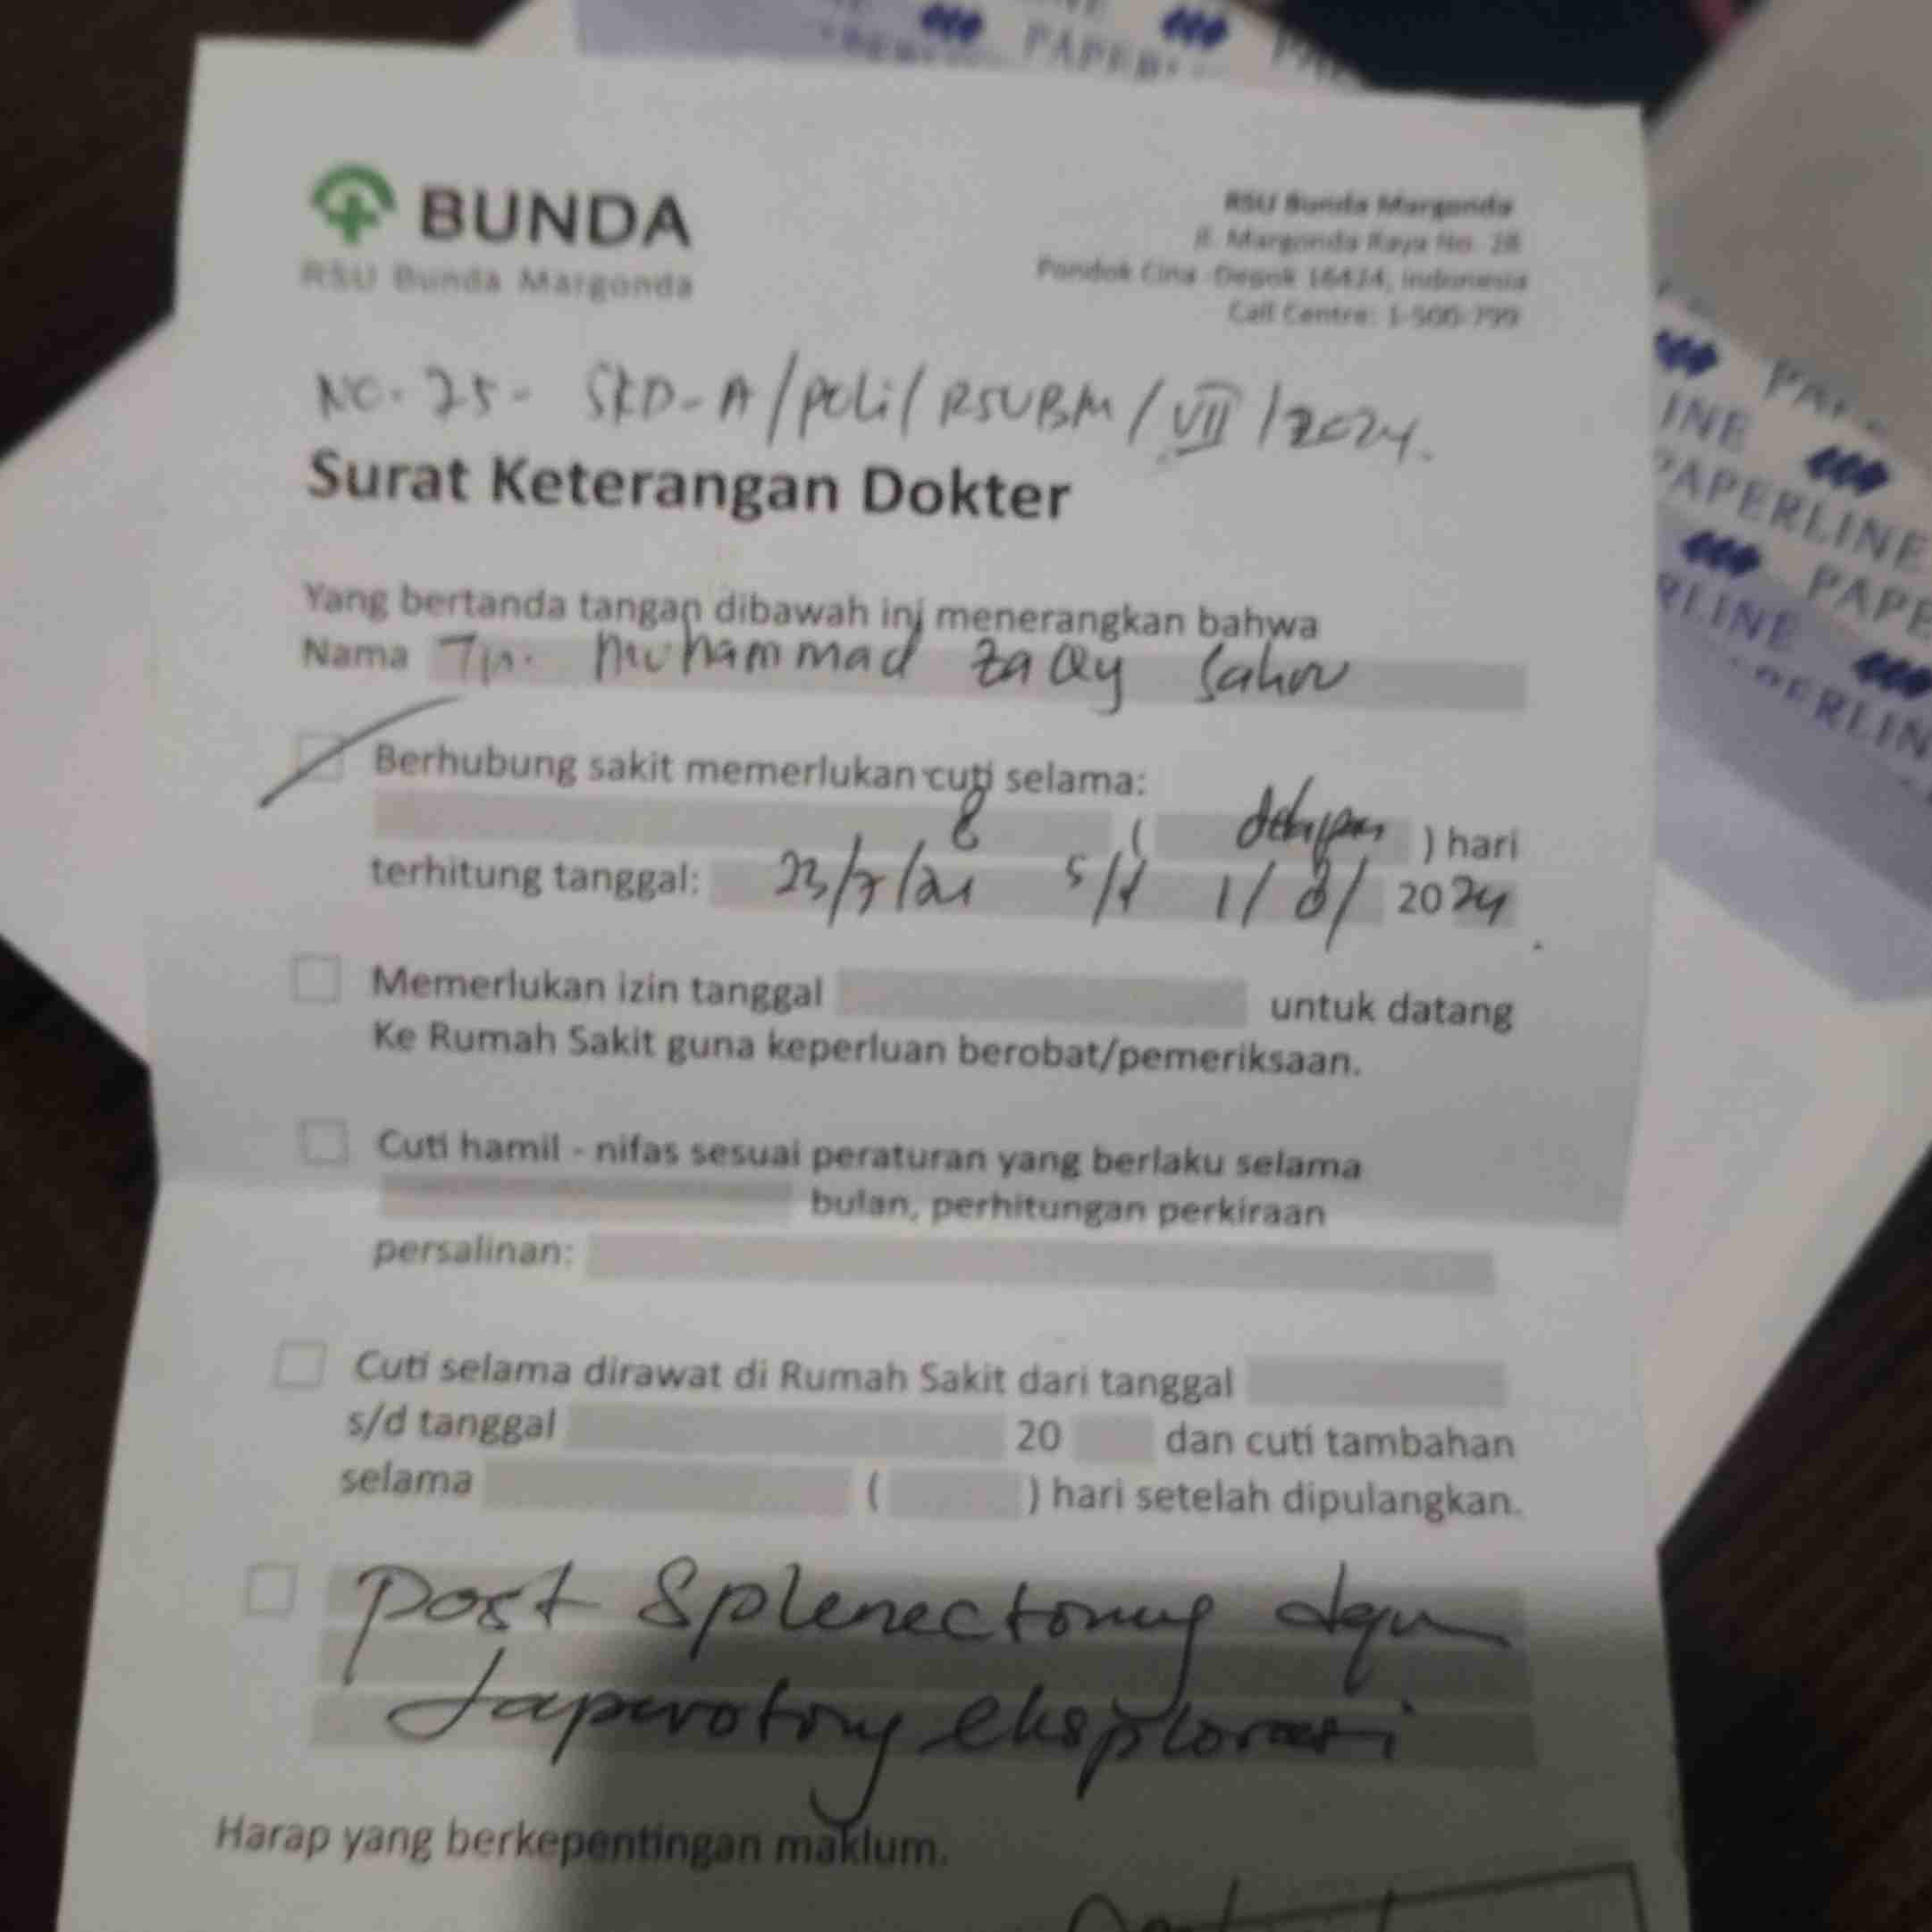 BUNDA
RSU Bunda Margonda
RSU Bunda Margonda
Jl. Margonda Raya No. 28
Pondok Cina - Depok 16424, Indonesia
Call Centre: 1-500-799
NO. 25 - SKD-A/poli/RSUBM/VII/2024.
Surat Keterangan Dokter
Yang bertanda tangan dibawah ini menerangkan bahwa
Nama Tn. Muhammad Zacky
Berhubung sakit memerlukan cuti selama:
8 ( delapan ) hari
terhitung tanggal: 23/7/24 s/d 1/8/ 2024
Memerlukan izin tanggal untuk datang
Ke Rumah Sakit guna keperluan berobat/pemeriksaan.
Cuti hamil - nifas sesuai peraturan yang berlaku selama
bulan, perhitungan perkiraan
persalinan:
Cuti selama dirawat di Rumah Sakit dari tanggal
s/d tanggal 20 dan cuti tambahan
selama ( ) hari setelah dipulangkan.
Post Splenectomy dgn
Laparotomy eksplorasi
Harap yang berkepentingan maklum.
PAPERLINE
PAPERLINE